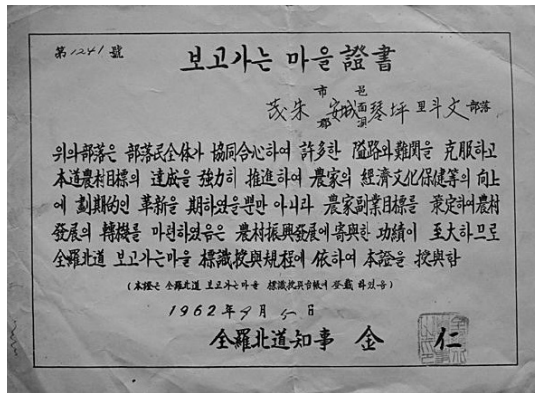 第1241號
보고가는 마을 證書
市 邑
茂朱 安城面 琴坪里 斗文 部落
郡
위의 部落은 部落民全体가 協同合心하여 許多한 隘路와 難関을 克服하고
本道農村目標의 達成을 強力히 推進하여 農家의 經濟文化保健等의 向上
에 劃期的인 革新을 期하였을뿐만 아니라 農家副業目標를 策定하여 農村
發展의 轉機를 마련하였음은 農村振興發展에 寄與한 功績이 至大하므로
全羅北道 보고가는마을 標識授與規程에 依하여 本證을 授與함
(本證은 全羅北道 보고가는마을 標識授與台帳에 登載 하였음)
1962年 9月 日
全羅北道知事 金 仁